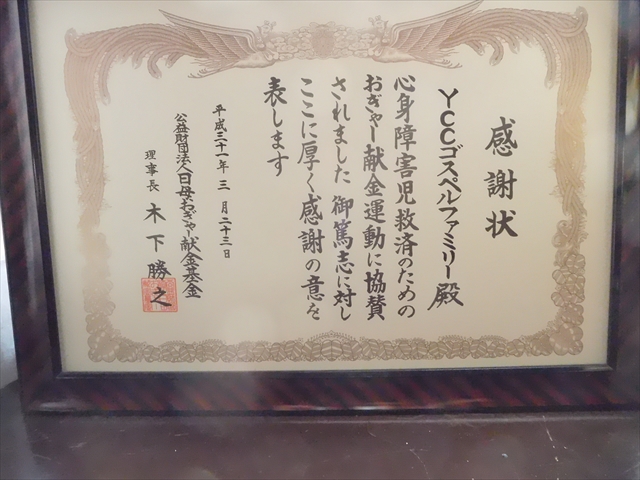 感謝状
YCCゴスペルファミリー殿
心身障害児救済のための
おぎゃー献金運動に協賛
されました 御篤志に対し
ここに厚く感謝の意を
表します
平成三十一年 三 月二十三日
公益財団法人日母おぎゃー献金基金
理事長 木下勝之